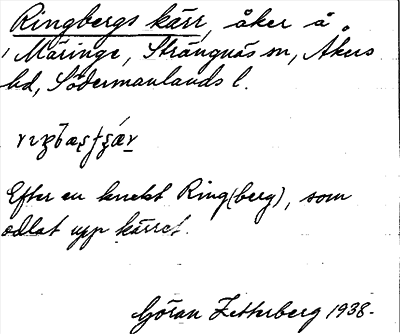 Ringbergs kärr, åker å
Märinge, Strängnäs sn, Åkers
hd, Södermanlands l.
Efter en knekt Ring(berg), som
odlat upp kärret.
Göran Zetterberg 1938.